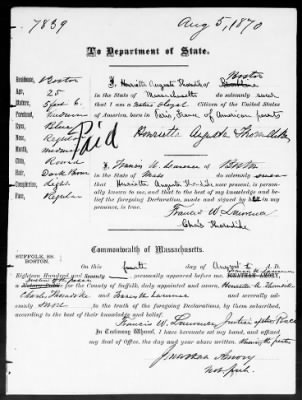 7839
Aug 5, 1870
To Department of State.
Residence, Boston
Age, 25
Stature, 5 feet 6.
Forehead, medium
Eyes, Blue
Nose, Regular
Mouth, medium
Chin, Round
Hair, Dark Brown
Complexion, Light
Face, Regular
Paid
I, Henrietta Augusta Thorndike Boston
in the State of Massachusetts do solemnly swear
that I am a Native & loyal Citizen of the United States
of America, born in Paris, France of American parents
Henrietta Augusta Thorndike
I, Francis W. Lawrence of Boston
in the State of Mass do solemnly swear
that Henrietta Augusta Thorndike now present, is personally
known to me, and that to the best of my knowledge and belief
the foregoing Declaration, made and signed in my
presence, is true.
Francis W Lawrence
Chas Thorndike
Commonwealth of Massachusetts.
SUFFOLK, SS.
BOSTON.
On this fourth day of August A. D.
Eighteen Hundred and Seventy personally appeared before me,
for the County of Suffolk, duly appointed and sworn, Henrietta A. Thorndike
Charles Thorndike and Francis W. Lawrence and severally
swore to the truth of the foregoing Declarations, by them subscribed,
according to the best of their knowledge and belief.
Francis W. Lawrence, Justice of the Peace
In Testimony Whereof, I have hereunto set my hand, and affixed
my Seal of Office, the day and year above written
Jonathan Amory
Not. Pub.